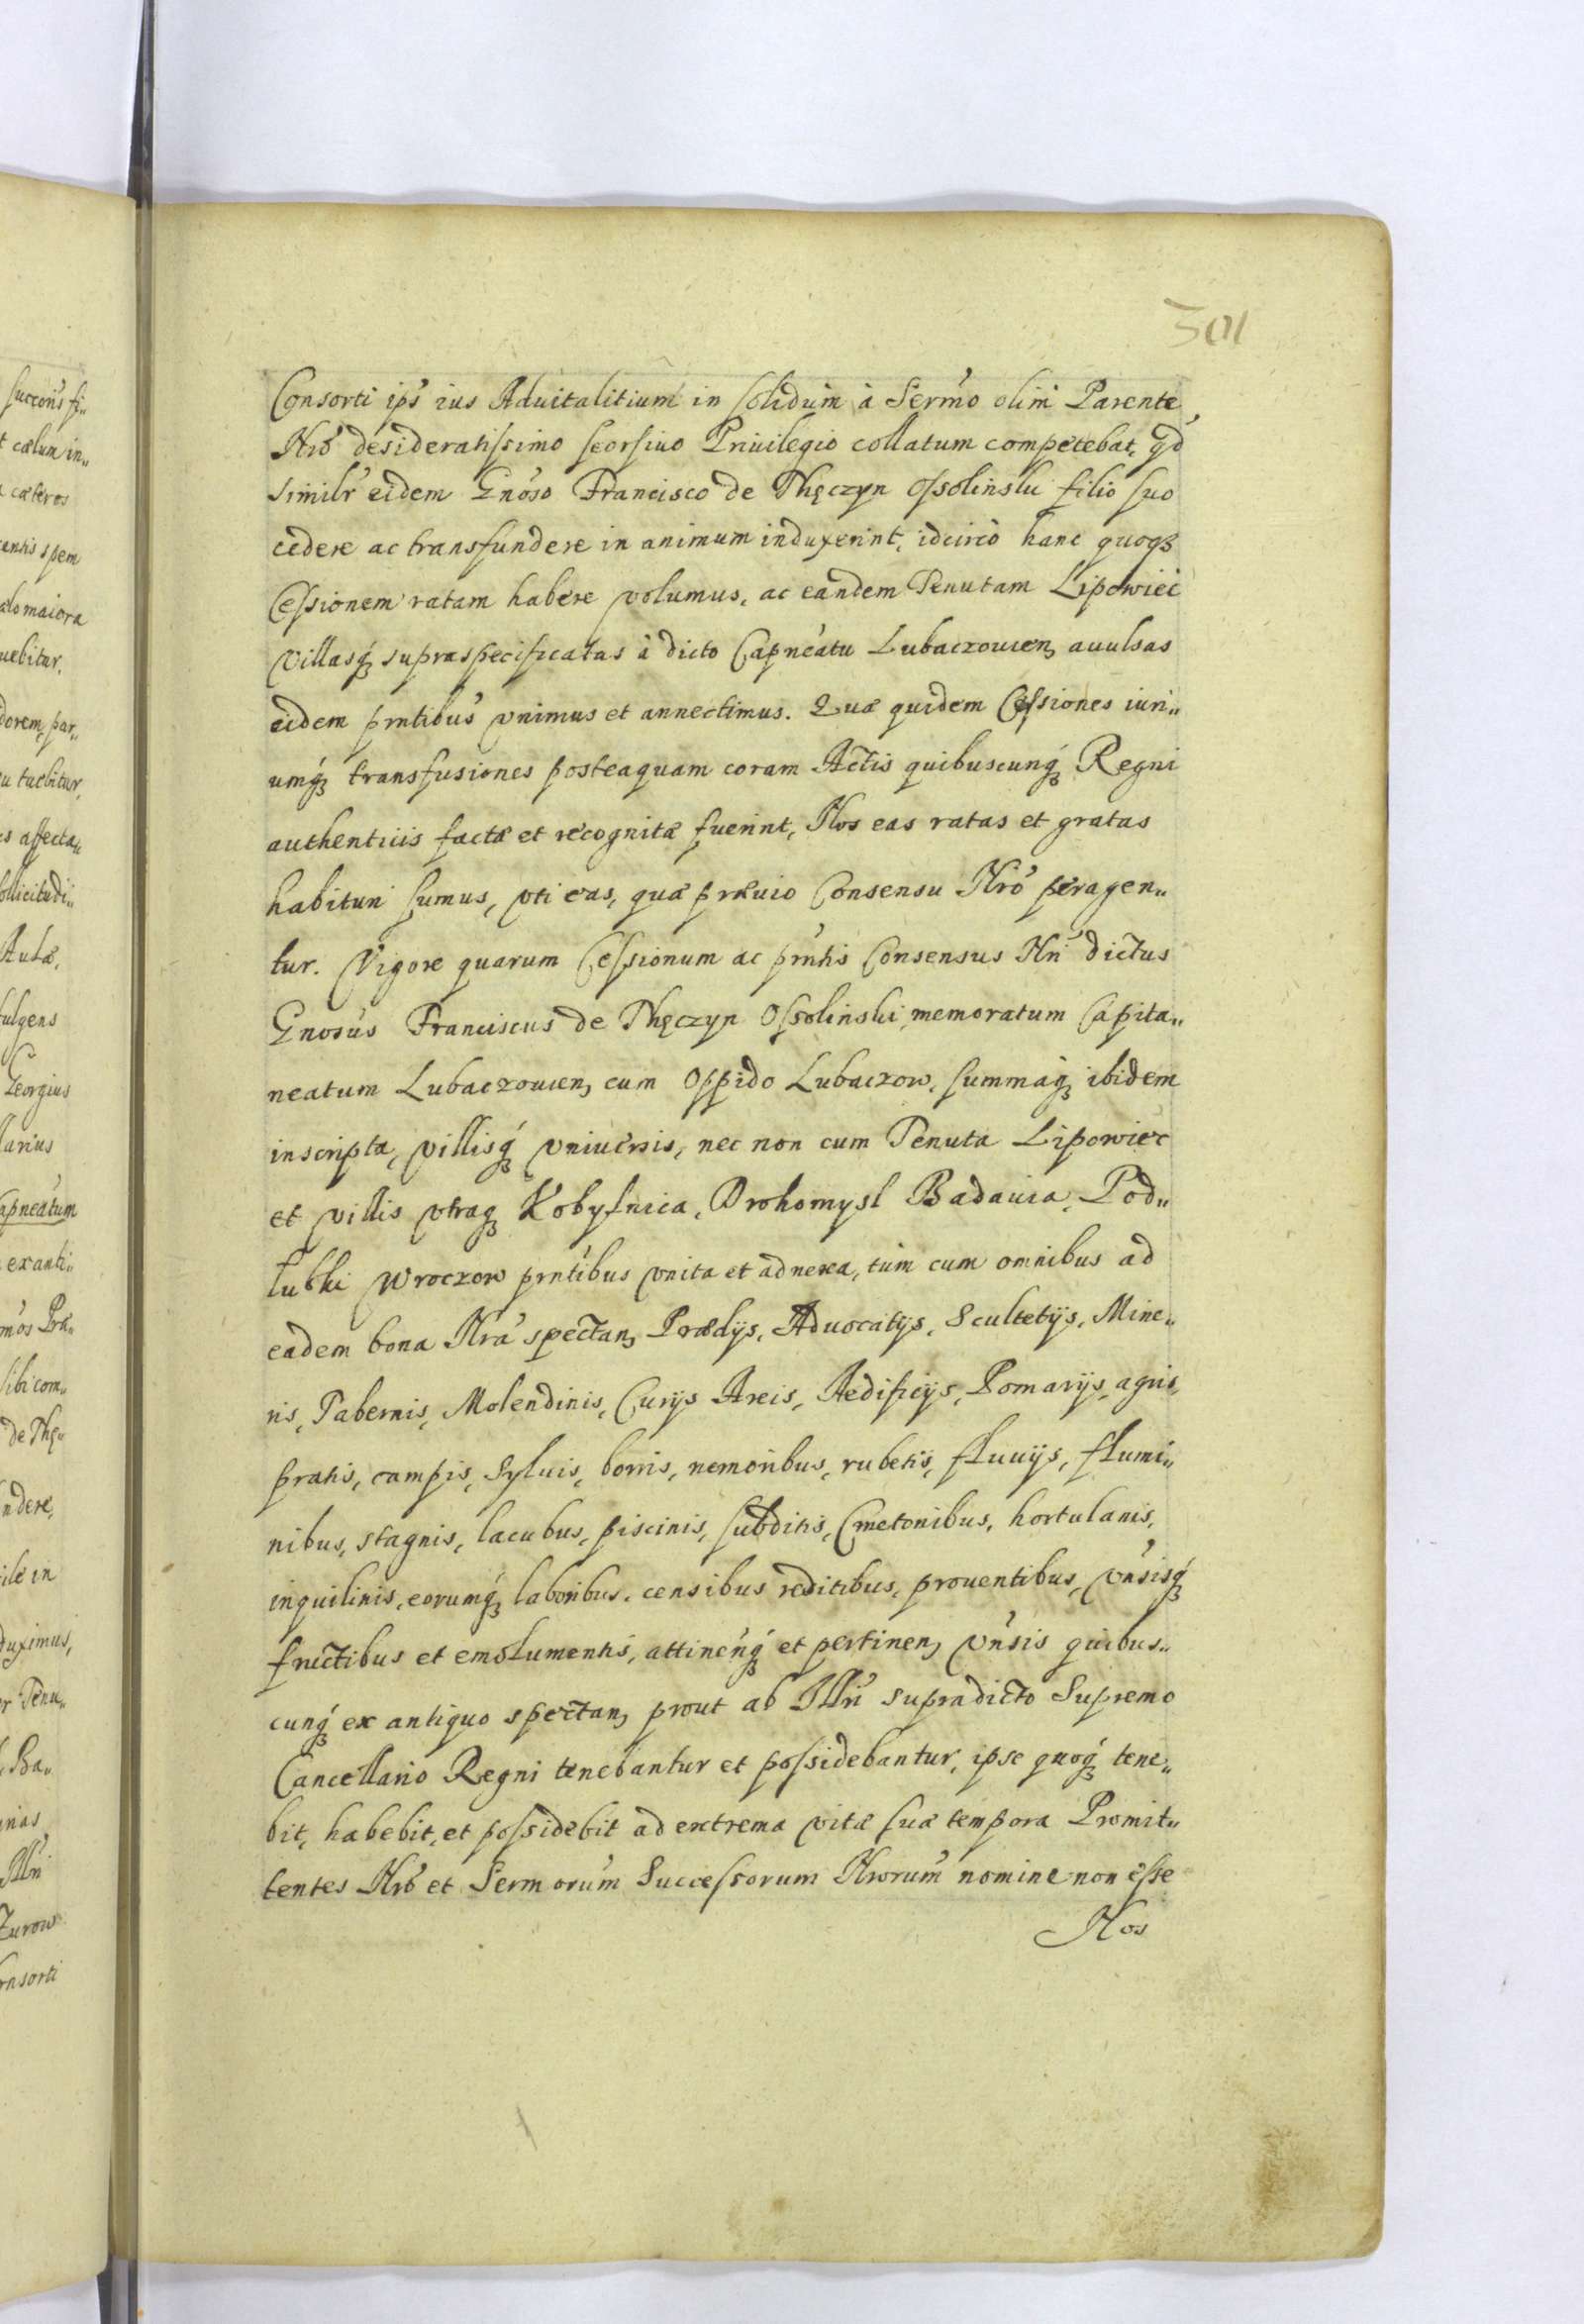 501
Consorti ips ius Aduitalitium in solidum à Sermo olim Parente
Nro desideratissimo seorsiuo Priuilegio collatum competebat, qd
similr eidem Gnoso Francisco de Thęczyn Ossolinski filio suo
cedere ac transfundere in animum induxerint, idcirco hanc quoqꝫ
Cessionem ratam habere volumus, ac eandem Tenutam Lipowiec
villasqꝫ supraspecificatas à dicto Capneatu Lubaczouien, auulsas
eidem prntibus vnimus et annectimus. Quæ quidem Cessiones iuri„
umqꝫ transfusiones posteaquam coram Actis quibuscunqꝫ Regni
authenticis factæ et recognitæ fuerint, Nos eas ratas et gratas
habituri sumus, vti eas, quæ præuio Consensu Nro peragen„
tur. Vigore quarum Cessionum ac prntis Consensus Nri dictus
Gnosus Franciscus de Thęczyn Ossolinski memoratum Capita„
neatum Lubaczouien, cum Oppido Lubaczow, summaqꝫ ibidem
inscripta, villisqꝫ vniuersis, nec non cum Tenuta Lipowiec
et villis vtraqꝫ Kobylnica, Drohomysl Badauia, Pod„
lubki Wroczow prntibus vnita et adnexa, tum cum omnibus ad
eadem bona Nra spectan, Prædijs, Aduocatijs, Scultetijs, Mine„
ris, Tabernis, Molendinis, Curijs Areis, Aedificijs, Pomarijs, agris,
pratis, campis, Syluis, borris, nemoribus, rubetis, fluuijs, flumi„
nibus, stagnis, lacubus, piscinis, subditis, Cmetonibus, hortulanis,
inquilinis, eorumqꝫ laboribus, censibus reditibus, prouentibus, vnsisqꝫ
fructibus et emolumentis, attinenqꝫ et pertinen, vnsis quibus„
cunqꝫ ex antiquo spectan, prout ab Illri supradicto Supremo
Cancellario Regni tenebantur et possidebantur, ipse quoqꝫ tene„
bit, habebit, et possidebit ad extrema vitæ suæ tempora Promit„
tentes Nro et Sermorum Successorum Nrorum nomine non esse
Nos